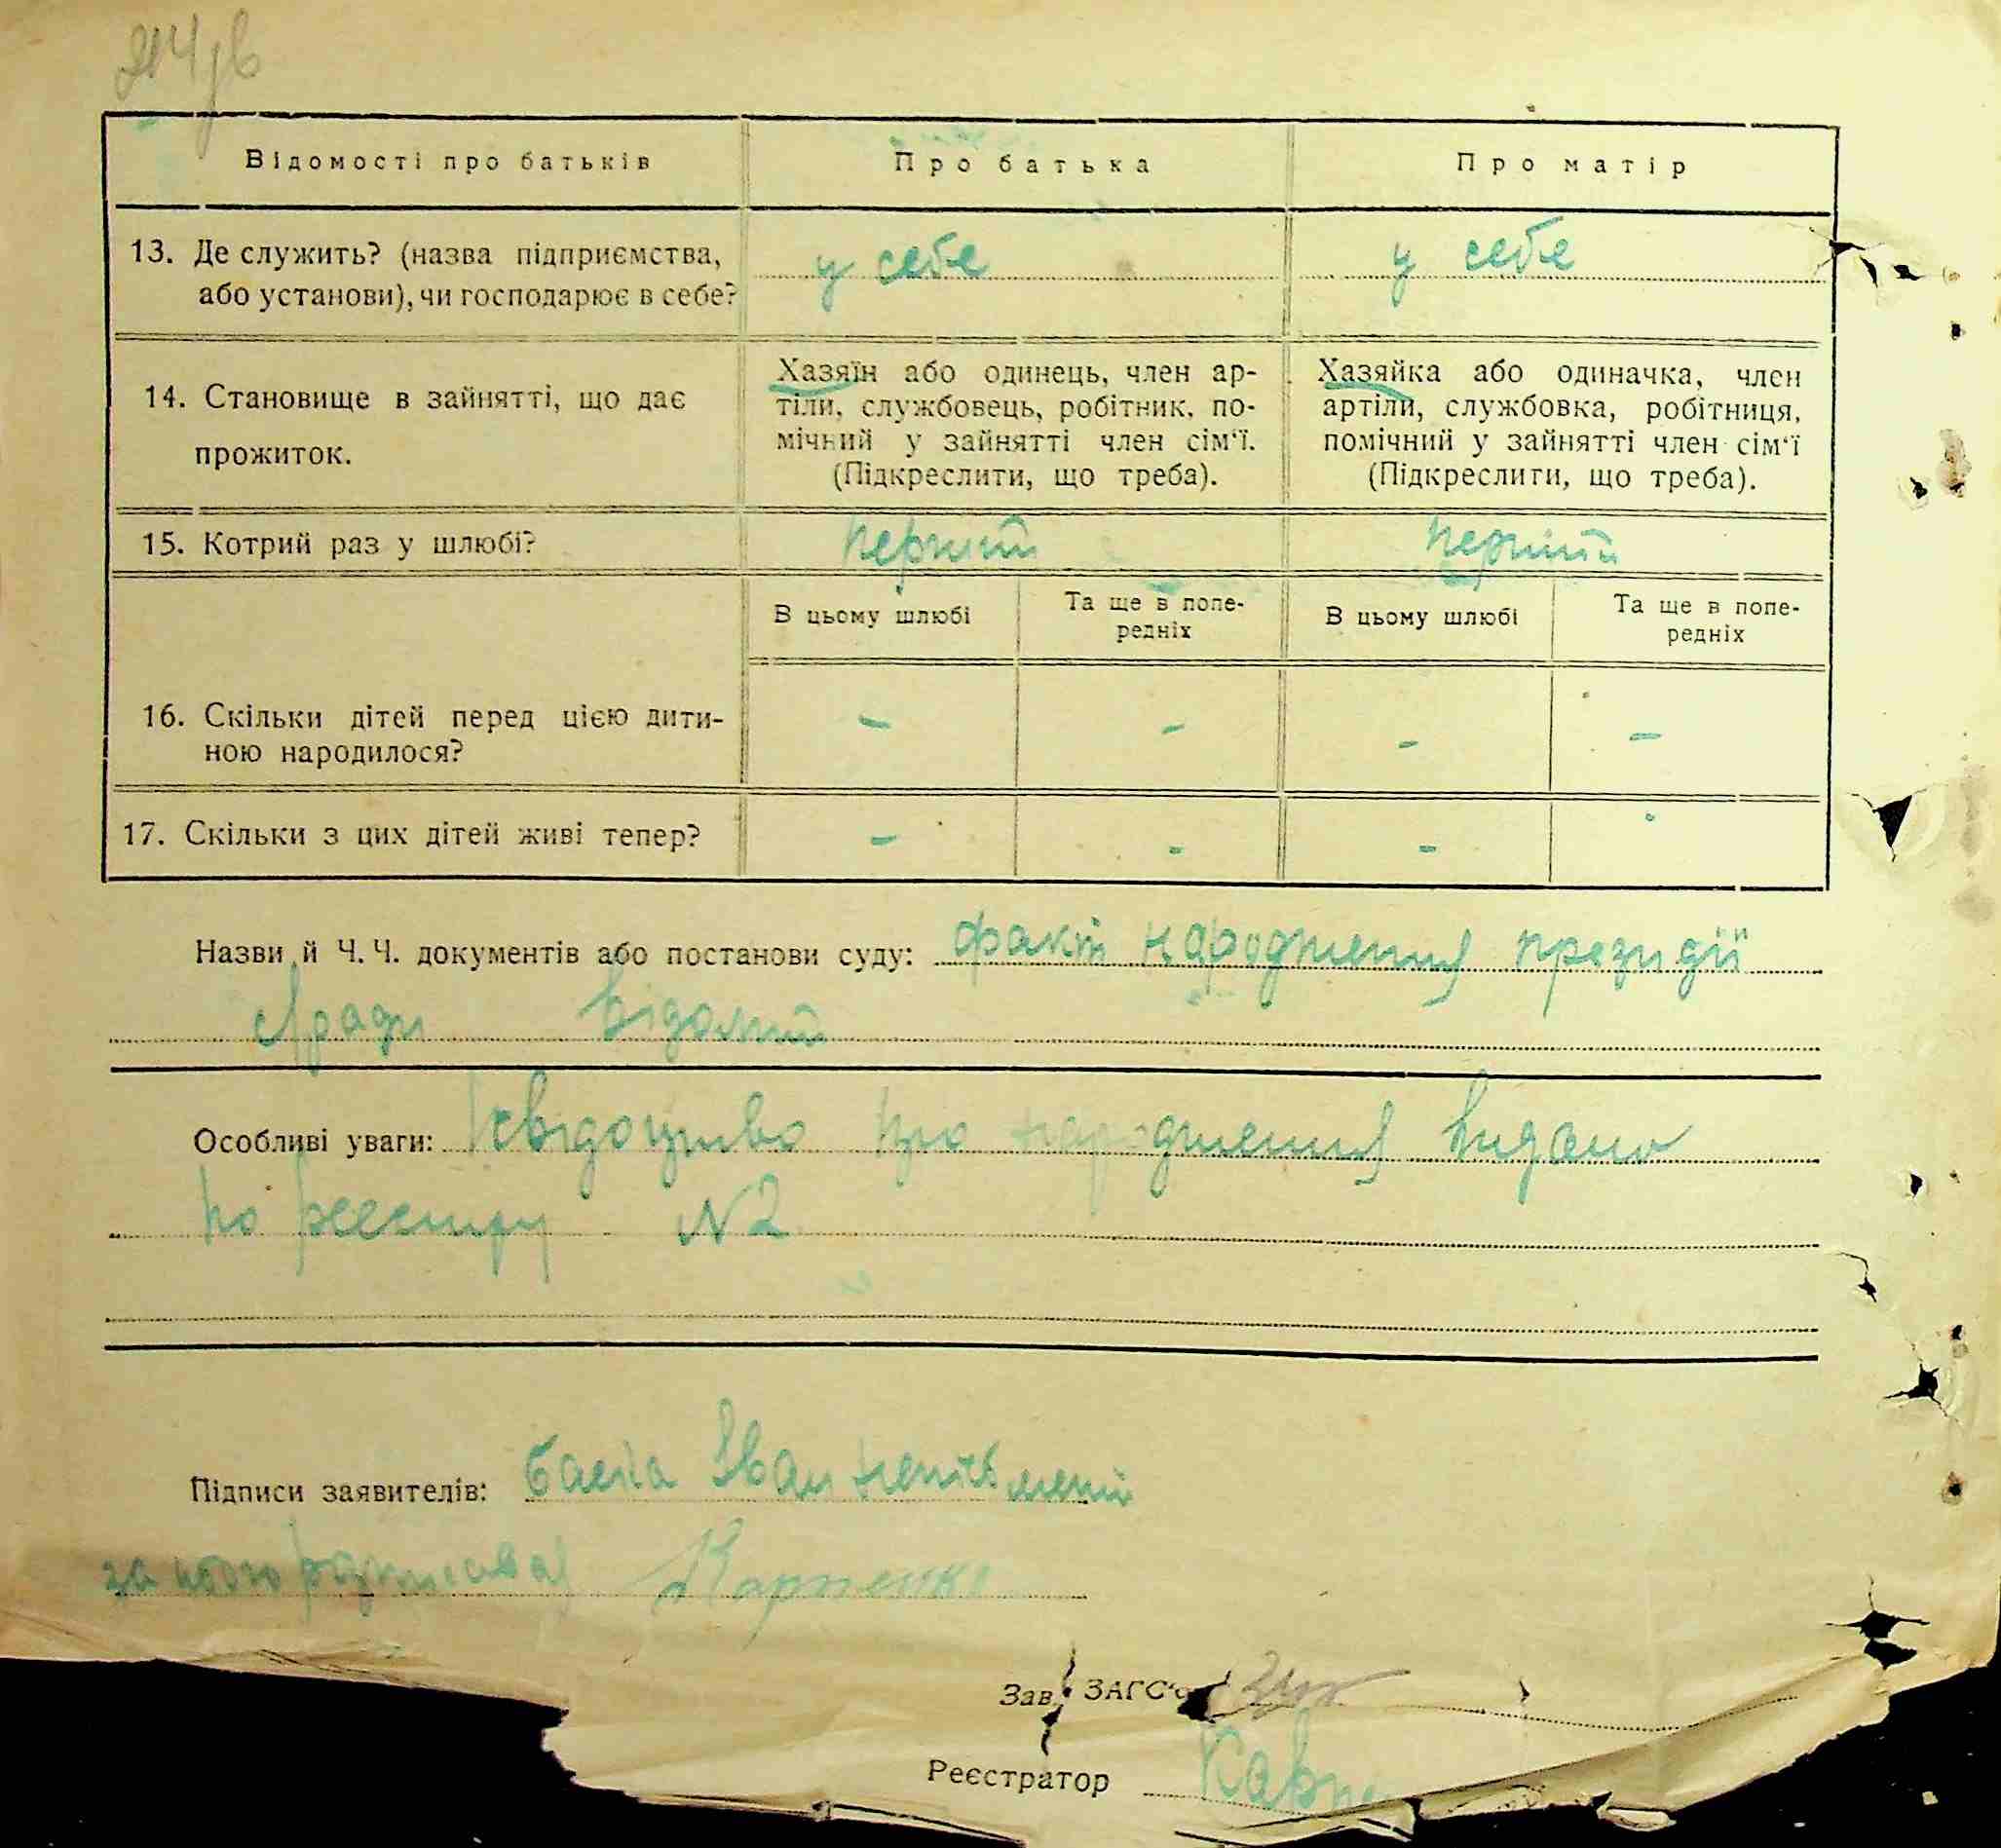 Відомості про батьків
Про батька
Про матір
13. Де служить? (назва підприємства,
або установи), чи господарює в себе?
у себе
у себе
14. Становище в зайнятті, що дає
прожиток.
Хазяїн або одинець, член ар-
тіли, службовець, робітник, по-
мічний у зайнятті член сім‘ї.
(Підкреслити, що треба).
Хазяйка або одиначка, член
артіли, службовка, робітниця,
помічний у зайнятті член сім‘ї
(Підкреслити, що треба).
15. Котрий раз у шлюбі?
перший
перший
В цьому шлюбі
Та ще в попе-
редніх
В цьому шлюбі
Та ще в попе-
редніх
16. Скільки дітей перед цією дити-
ною народилося?
- - - -
17. Скільки з цих дітей живі тепер?
- - -
Назви й Ч. Ч. документів або постанови суду: факт народження президії
с/ради відомий
Особливі уваги: свідоцтво про народження видано
по реестру N2
Підписи заявителів: Іван
за нього Карпенко
Зав. ЗАГС‘о
Реєстратор Карпе